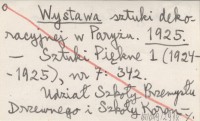 Wystawa sztuki deko-
racyjnej w Paryżu. 1925.
— Sztuki Piękne 1 (1924-
-1925), nr 7: 342.
Udział Szkoły Przemysłu
Drzewnego i Szkoły Koron-